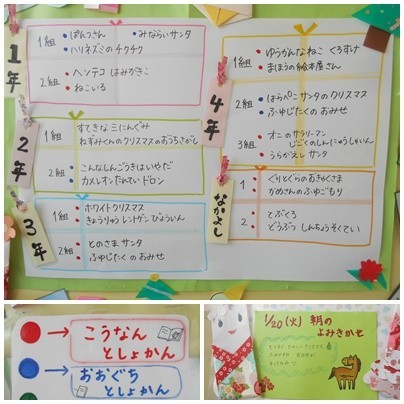 1年
1組
・ぱんつさん
・みならいサンタ
・ハリネズミのチクチク
2組
・ヘンテコ はみがきこ
・ねこいる
2年
1組
すてきな三にんぐみ
ねずみくんのクリスマスのおうちさがし
2組
・こんなしんごうきはいやだ
・カメレオンだれでいドロン
3年
1組
・ホワイトクリスマス
・きょうりゅうレントゲンびょういん
2組
・とのさまサンタ
・ふゆじたくのおみせ
4年
1組
・ゆうかんなねこ くろすけ
・まほうの絵本屋さん
2組
・はらぺこサンタのクリスマス
・ふゆじたくのおみせ
3組
・オニのサラリーマン
じごくのしんにゅうしゃいん
・うらがえしサンタ
なかよし
1
・くりとぐらのあきやさま
・かめさんのふゆごもり
2
・とぶくろ
・どうぶつしんちょうそくてい
こうなん
としょかん
おおぐち
としょかん
1/20(火) 朝の
よみきかせ